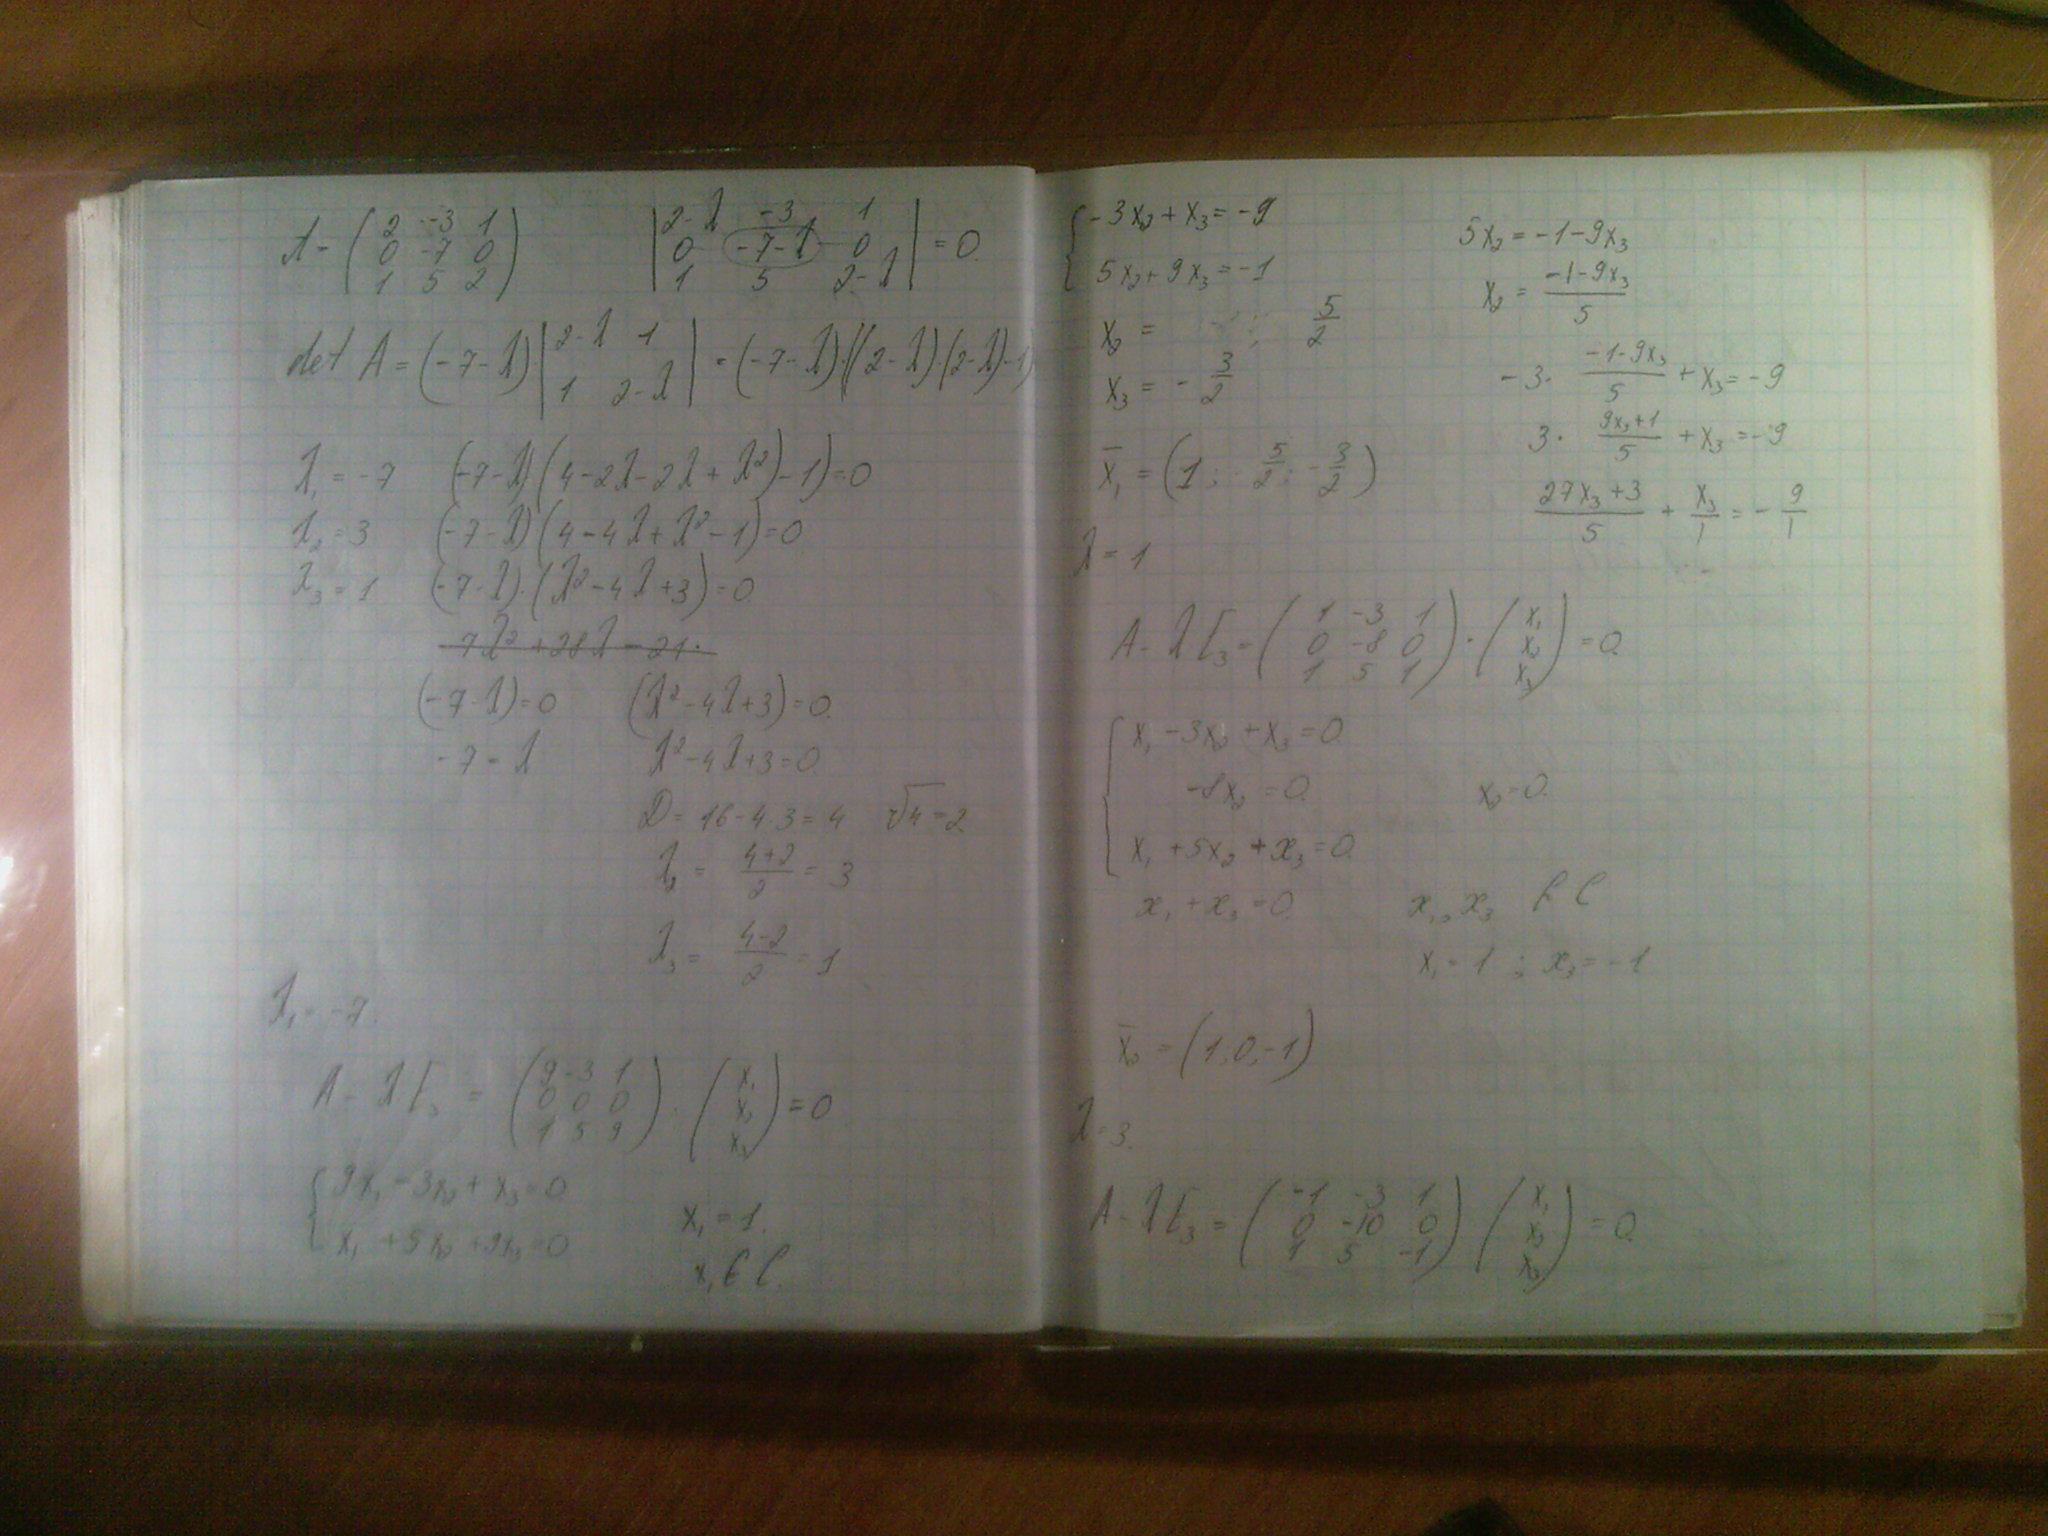 A = ( 2 -3 1
0 -7 0
1 5 2 )
| 2-λ -3 1
0 -7-λ 0
1 5 2-λ | = 0
det A = (-7-λ) | 2-λ 1
1 2-λ | = (-7-λ)·((2-λ)·(2-λ)-1)
λ₁ = -7 (-7-λ)(4-2λ-2λ+λ²)-1)=0
λ₂ = 3 (-7-λ)(4-4λ+λ²-1)=0
λ₃ = 1 (-7-λ)·(λ²-4λ+3)=0
-7λ²+28λ-21
(-7-λ)=0 (λ²-4λ+3)=0
-7=λ λ²-4λ+3=0
D=16-4·3=4 √4=2
λ₂ = (4+2)/2 = 3
λ₃ = (4-2)/2 = 1
λ₁ = -7
A-λE₃ = ( 9 -3 1
0 0 0
1 5 9 ) · ( x₁
x₂
x₃ ) = 0
{ 9x₁-3x₂+x₃=0
x₁+5x₂+9x₃=0
x₁=1.
x₁ ∈ C.
{ -3x₂+x₃=-9
5x₂+9x₃=-1
x₂ = 5/2
x₃ = -3/2
x̄₁ = (1; -5/2; -3/2)
5x₂=-1-9x₃
x₂ = (-1-9x₃)/5
-3· (-1-9x₃)/5 + x₃=-9
3· (9x₃+1)/5 + x₃=-9
(27x₃+3)/5 + x₃/1 = -9/1
λ=1
A-λE₃= ( 1 -3 1
0 -8 0
1 5 1 ) · ( x₁
x₂
x₃ ) = 0
{ x₁-3x₂+x₃=0
-8x₂=0 x₂=0.
x₁+5x₂+x₃=0
x₁+x₃=0 x₁, x₃ ∈ C
x₁=1 ; x₃=-1
x̄₂ = (1;0;-1)
λ=3.
A-λE₃= ( -1 -3 1
0 -10 0
1 5 -1 ) · ( x₁
x₂
x₃ ) = 0